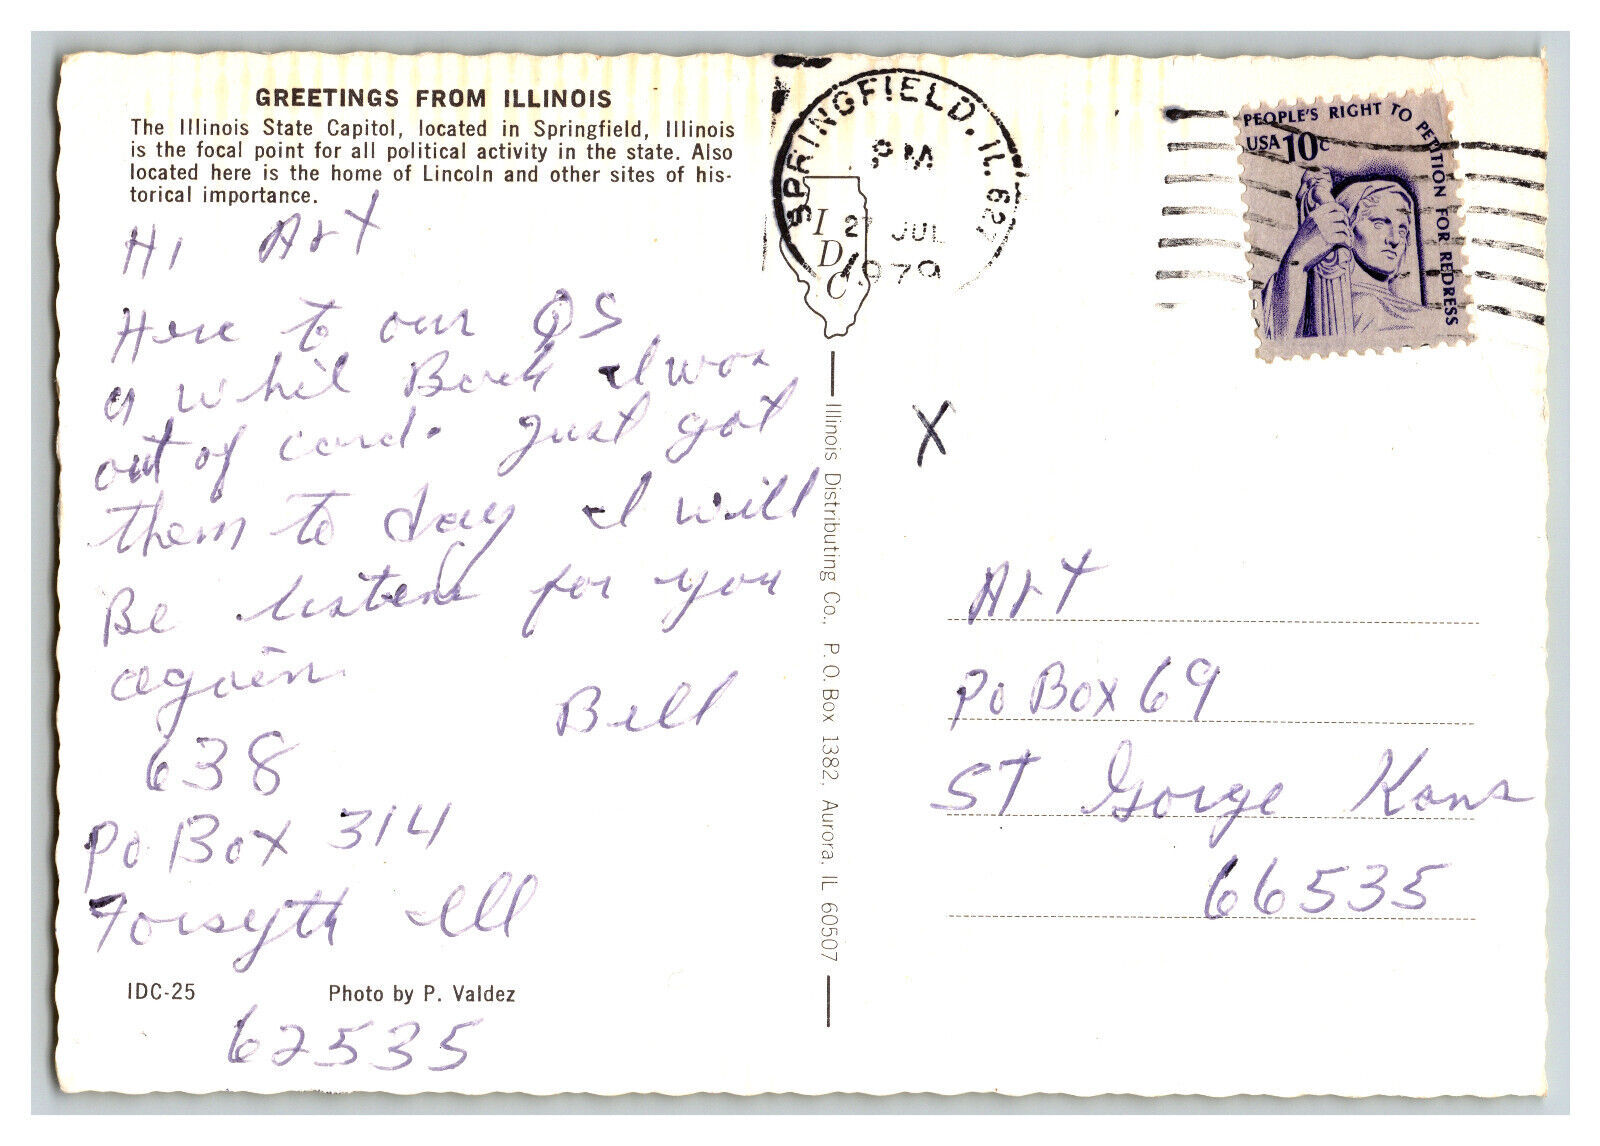 GREETINGS FROM ILLINOIS
The Illinois State Capitol, located in Springfield, Illinois
is the focal point for all political activity in the state. Also
located here is the home of Lincoln and other sites of his-
torical importance.
Hi Art
Here to our QS
a whil Back I was
out of card. Just got
them to day I will
Be listen for you
again
Bill
638
PO Box 314
Forsyth Ill
IDC-25
Photo by P. Valdez
62535
SPRINGFIELD, IL 627
PM
27 JUL
1979
IDC
Illinois Distributing Co., P.O. Box 1382, Aurora, IL 60507
PEOPLE'S RIGHT TO PETITION FOR REDRESS
USA 10c
X
Art
PO Box 69
ST Gorge Kans
66535